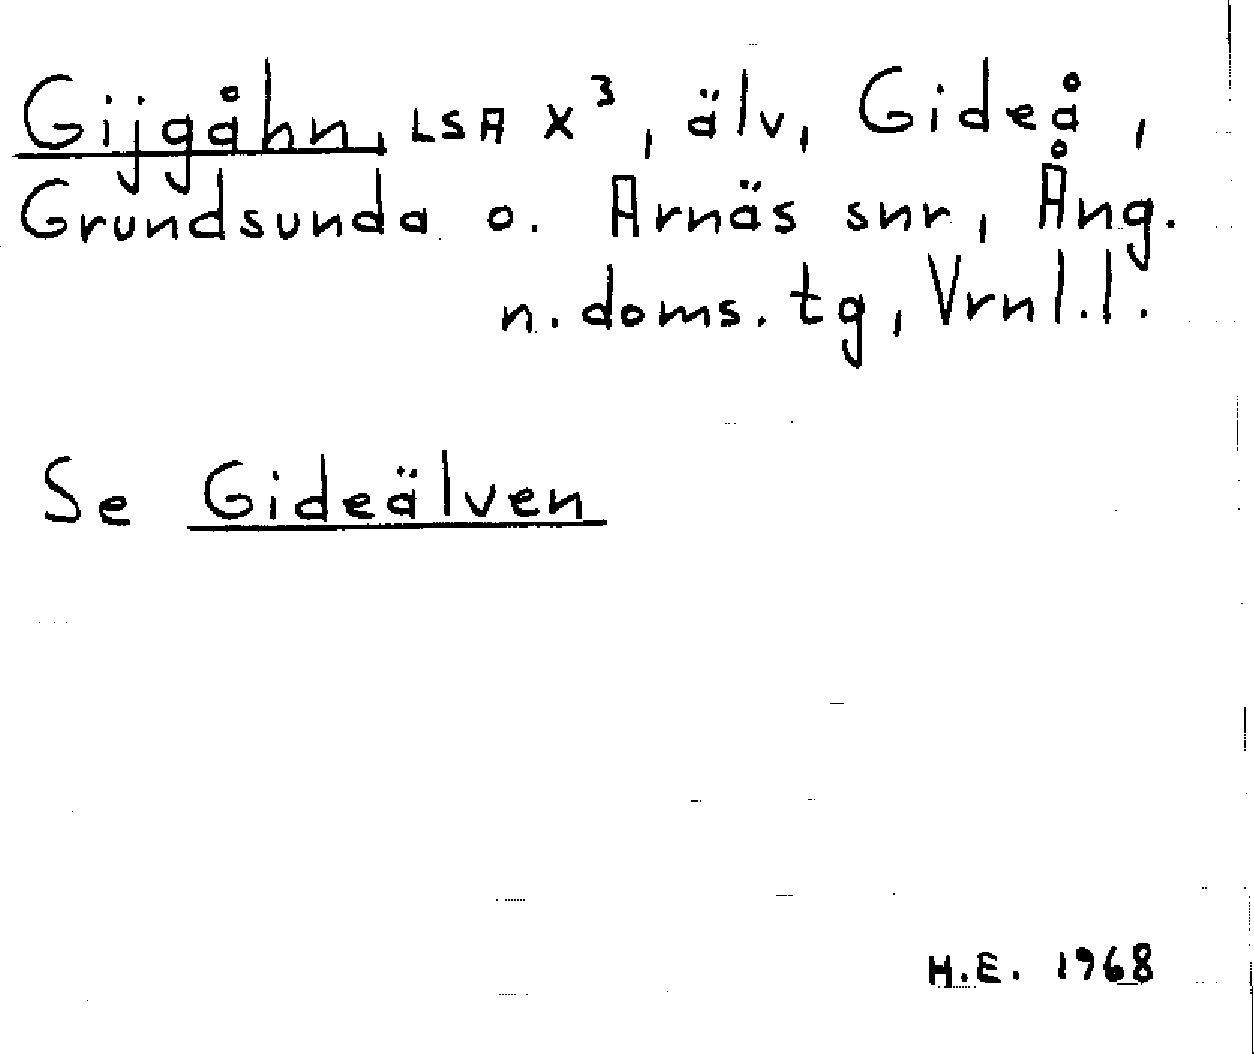 Gijgåhn, LSA X³, älv, Gideå,
Grundsunda o. Arnäs snr, Ång.
n. doms. tg, Vrnl.l.
Se Gideälven
H.E. 1968